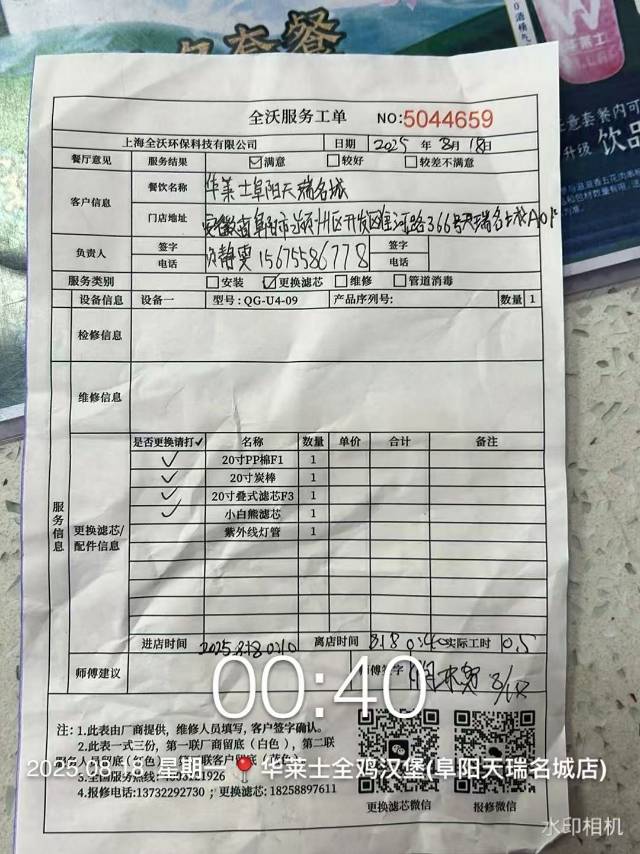 套餐
全沃服务工单 NO:5044659
上海全沃环保科技有限公司 日期 2025年8月18日
餐厅意见 服务结果 满意 较好 较差不满意
客户信息 餐饮名称 华莱士阜阳天瑞名城
门店地址 安徽省阜阳市 州区开发区 河路366号天瑞名城A01
负责人 签字 静雯 签字
电话 15675586778 电话
服务类别 安装 更换滤芯 维修 管道消毒
设备信息 设备一 型号:QG-U4-09 产品序列号: 数量 1
检修信息
维修信息
服务信息
更换滤芯/配件信息
是否更换请打✓ 名称 数量 单价 合计 备注
✓ 20寸PP棉F1 1
✓ 20寸炭棒 1
✓ 20寸叠式滤芯F3 1
✓ 小白熊滤芯 1
紫外线灯管 1
进店时间 2025.8.18 0:10 离店时间 8.18 0:40 实际工时 0.5
师傅建议 师傅签字 8/18
00:40
注: 1.此表由厂商提供，维修人员填写，客户签字确认。
2.此表一式三份，第一联厂商留底（白色），第二联
2025.08.18 星期一 华莱士全鸡汉堡(阜阳天瑞名城店)
3.全国服务热线:
4.报修电话:13732292730 ; 更换滤芯: 18258897611
更换滤芯微信 报修微信
水印相机